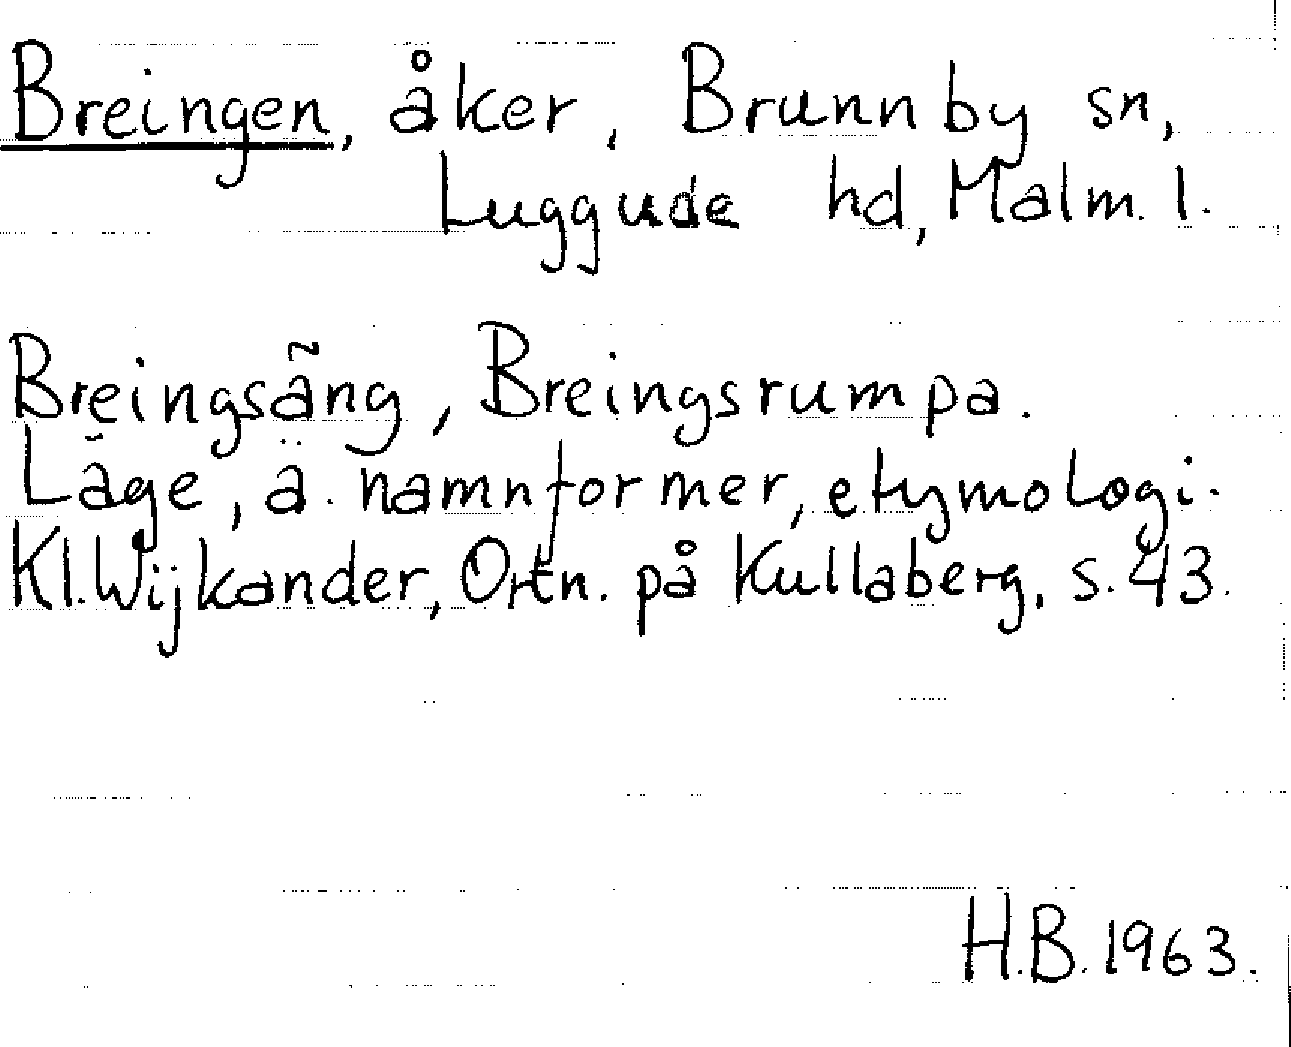 Breingen, åker, Brunnby sn,
Luggude hd, Malm. l.
Breingsäng, Breingsrumpa.
Läge, ä. namnformer, etymologi.
Kl. Wijkander, Ortn. på Kullaberg, s. 43.
H.B. 1963.